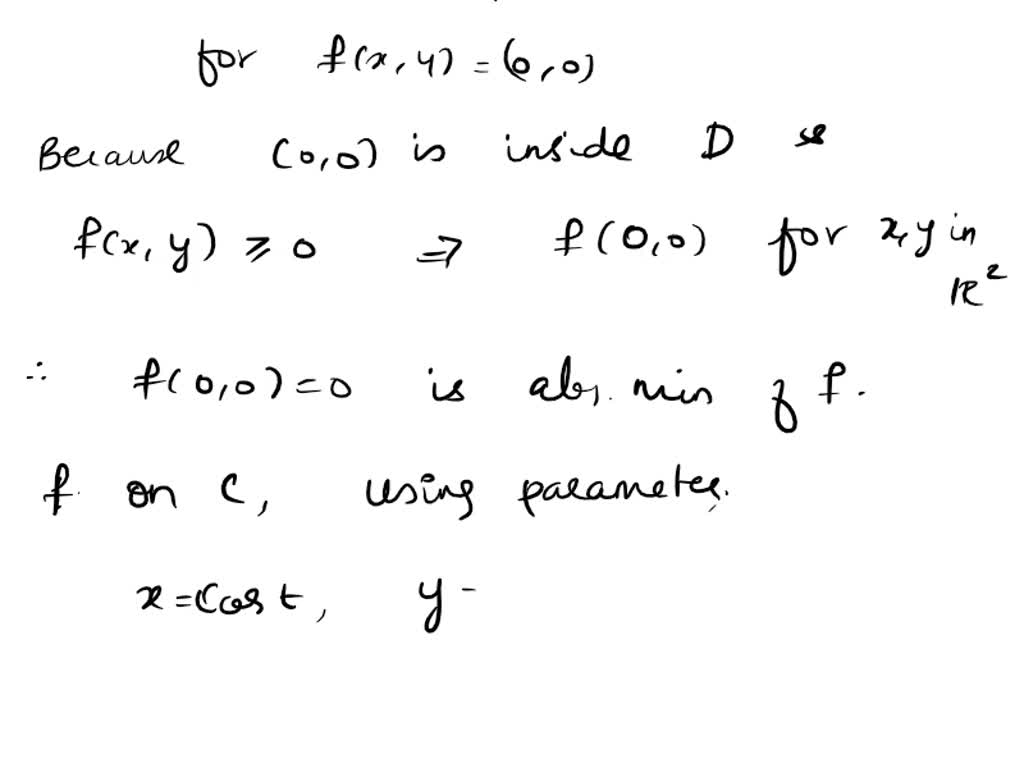 for f(x, y) = (0, 0)
Because (0,0) is inside D so
f(x, y) ⩾ 0 ⇒ f(0,0) for x, y in
ℝ²
∴ f(0,0) = 0 is abs. min of f.
f on C, using parameter.
x = Cos t, y -